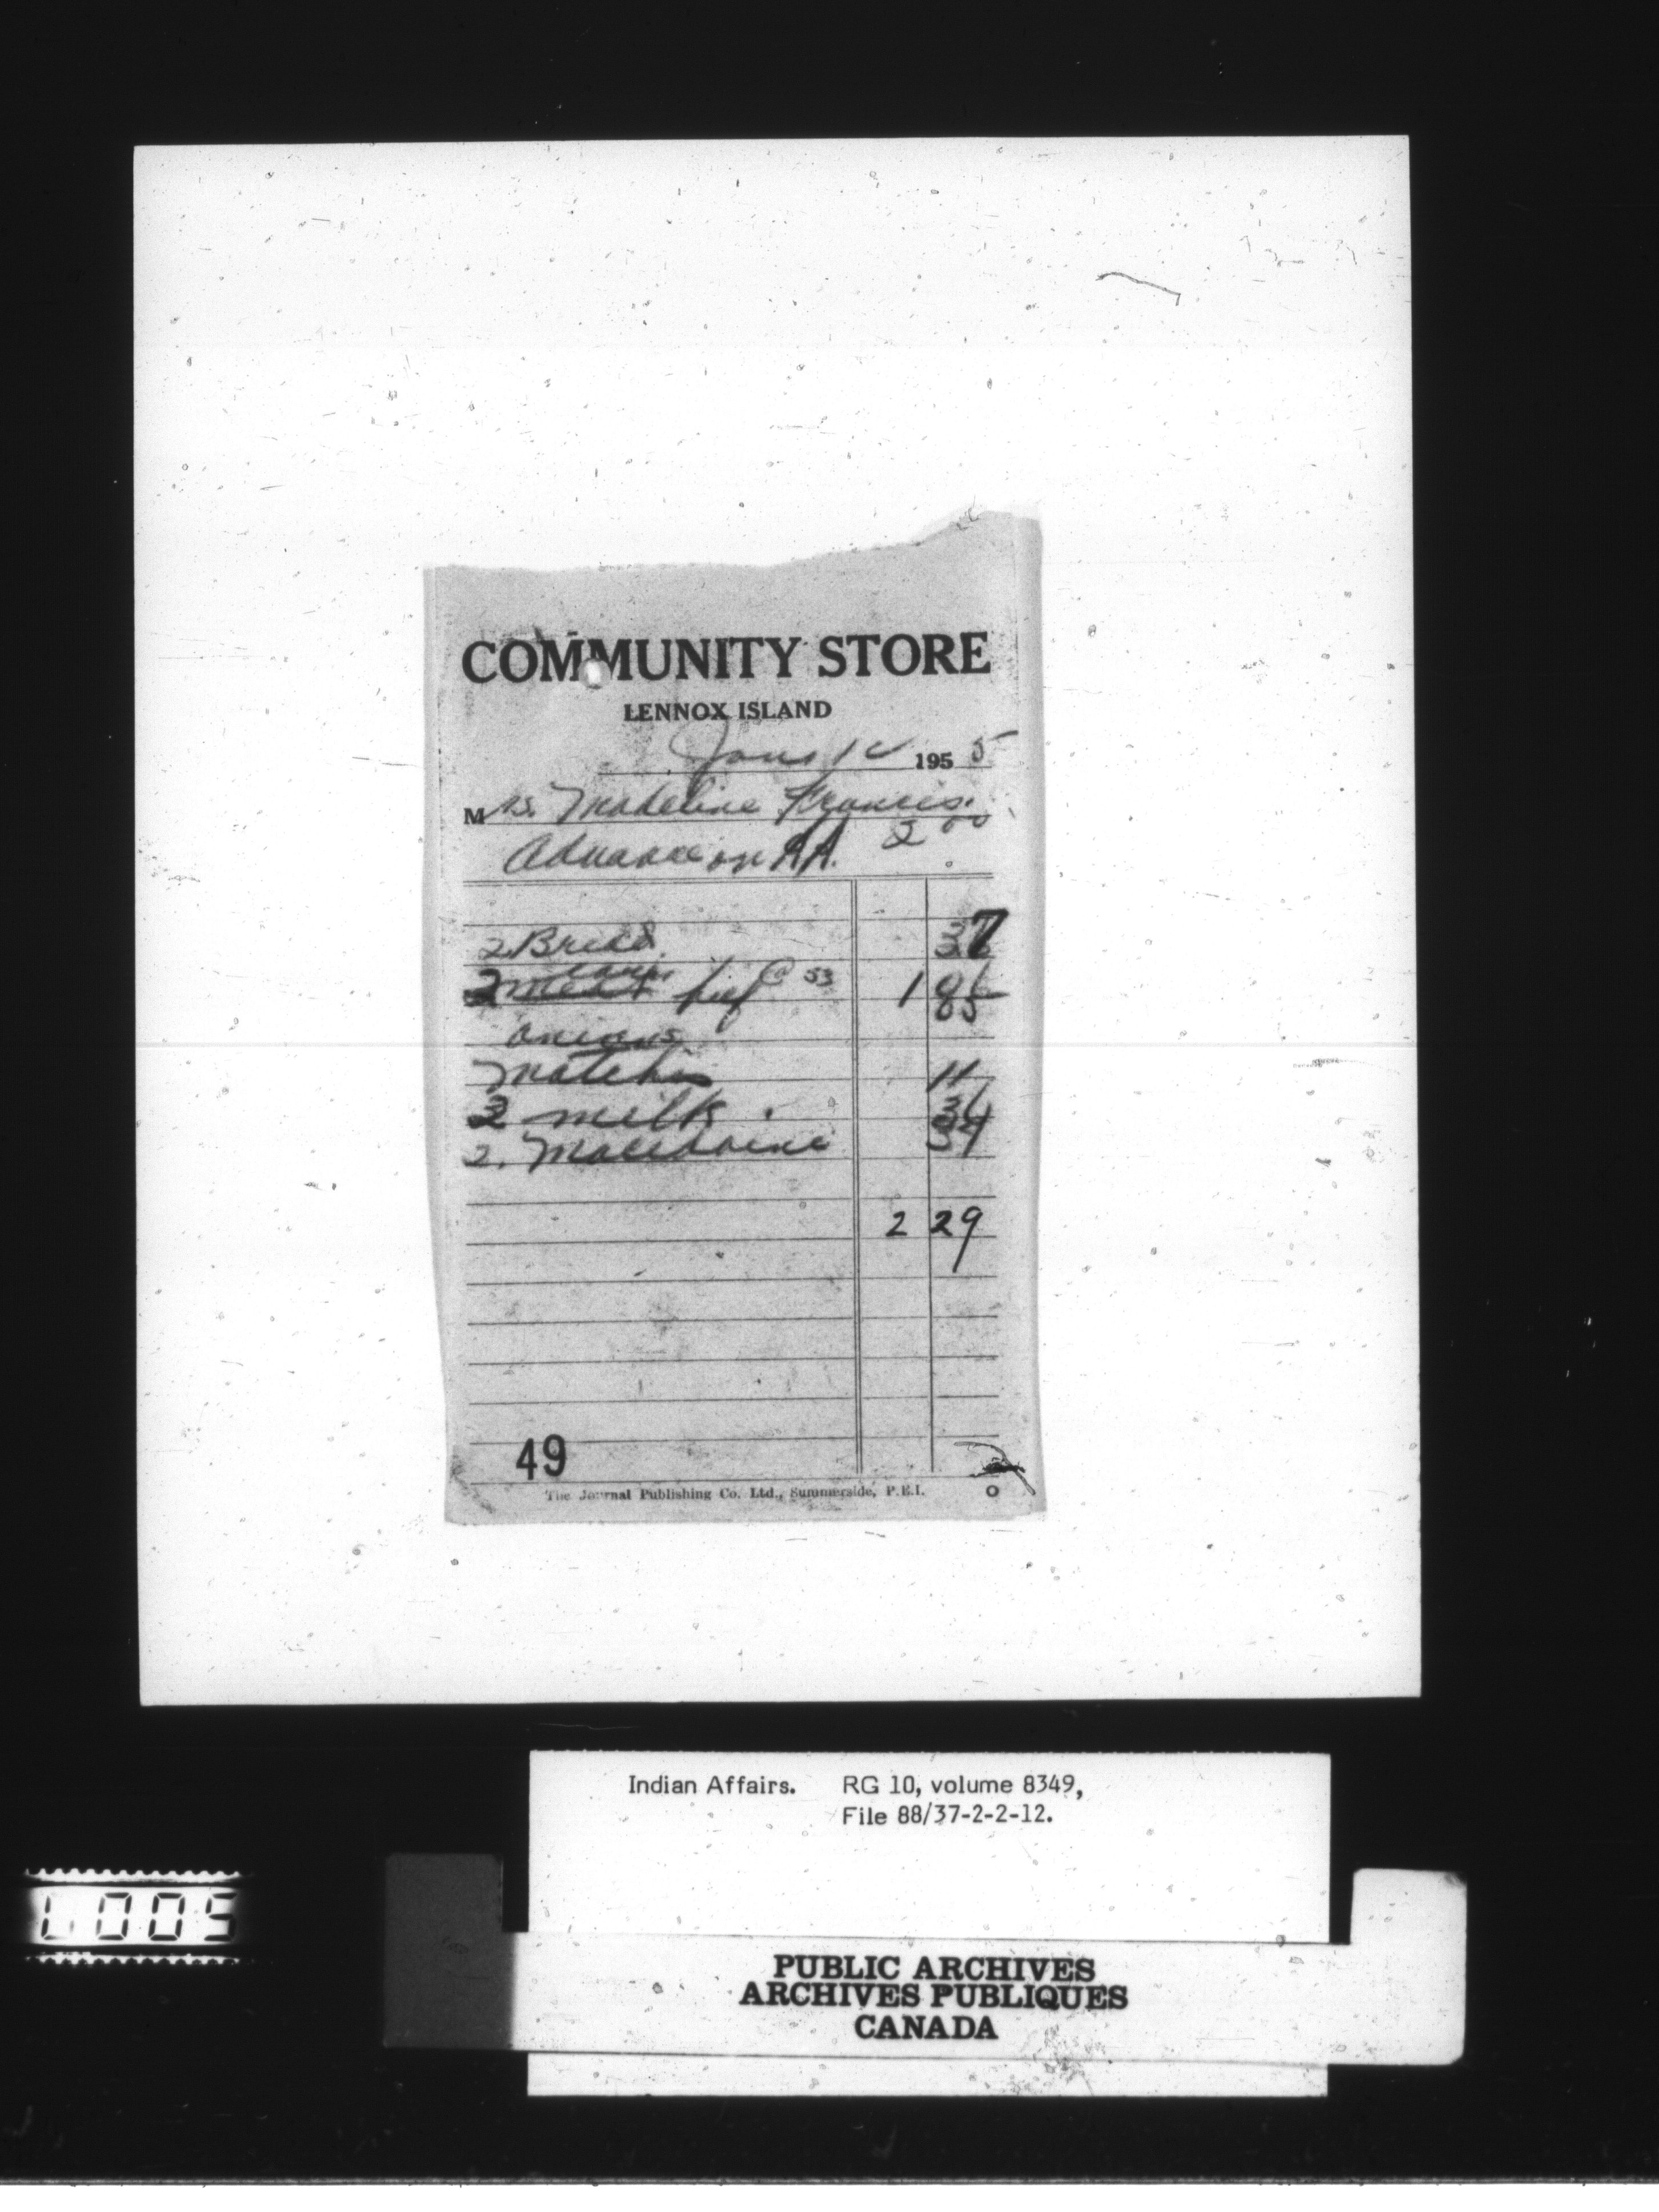 COMMUNITY STORE
LENNOX ISLAND
Jan 12 1955
Mrs. Madeline Francis.
Advance on RA. 2 00
2 Bread 37
beef @ 53 1
onions
Matches 11
2 milk
2. Macedoine 34
2 29
49
The Journal Publishing Co. Ltd., Summerside, P.E.I.
Indian Affairs. RG 10, volume 8349,
File 88/37-2-2-12.
L005
PUBLIC ARCHIVES
ARCHIVES PUBLIQUES
CANADA